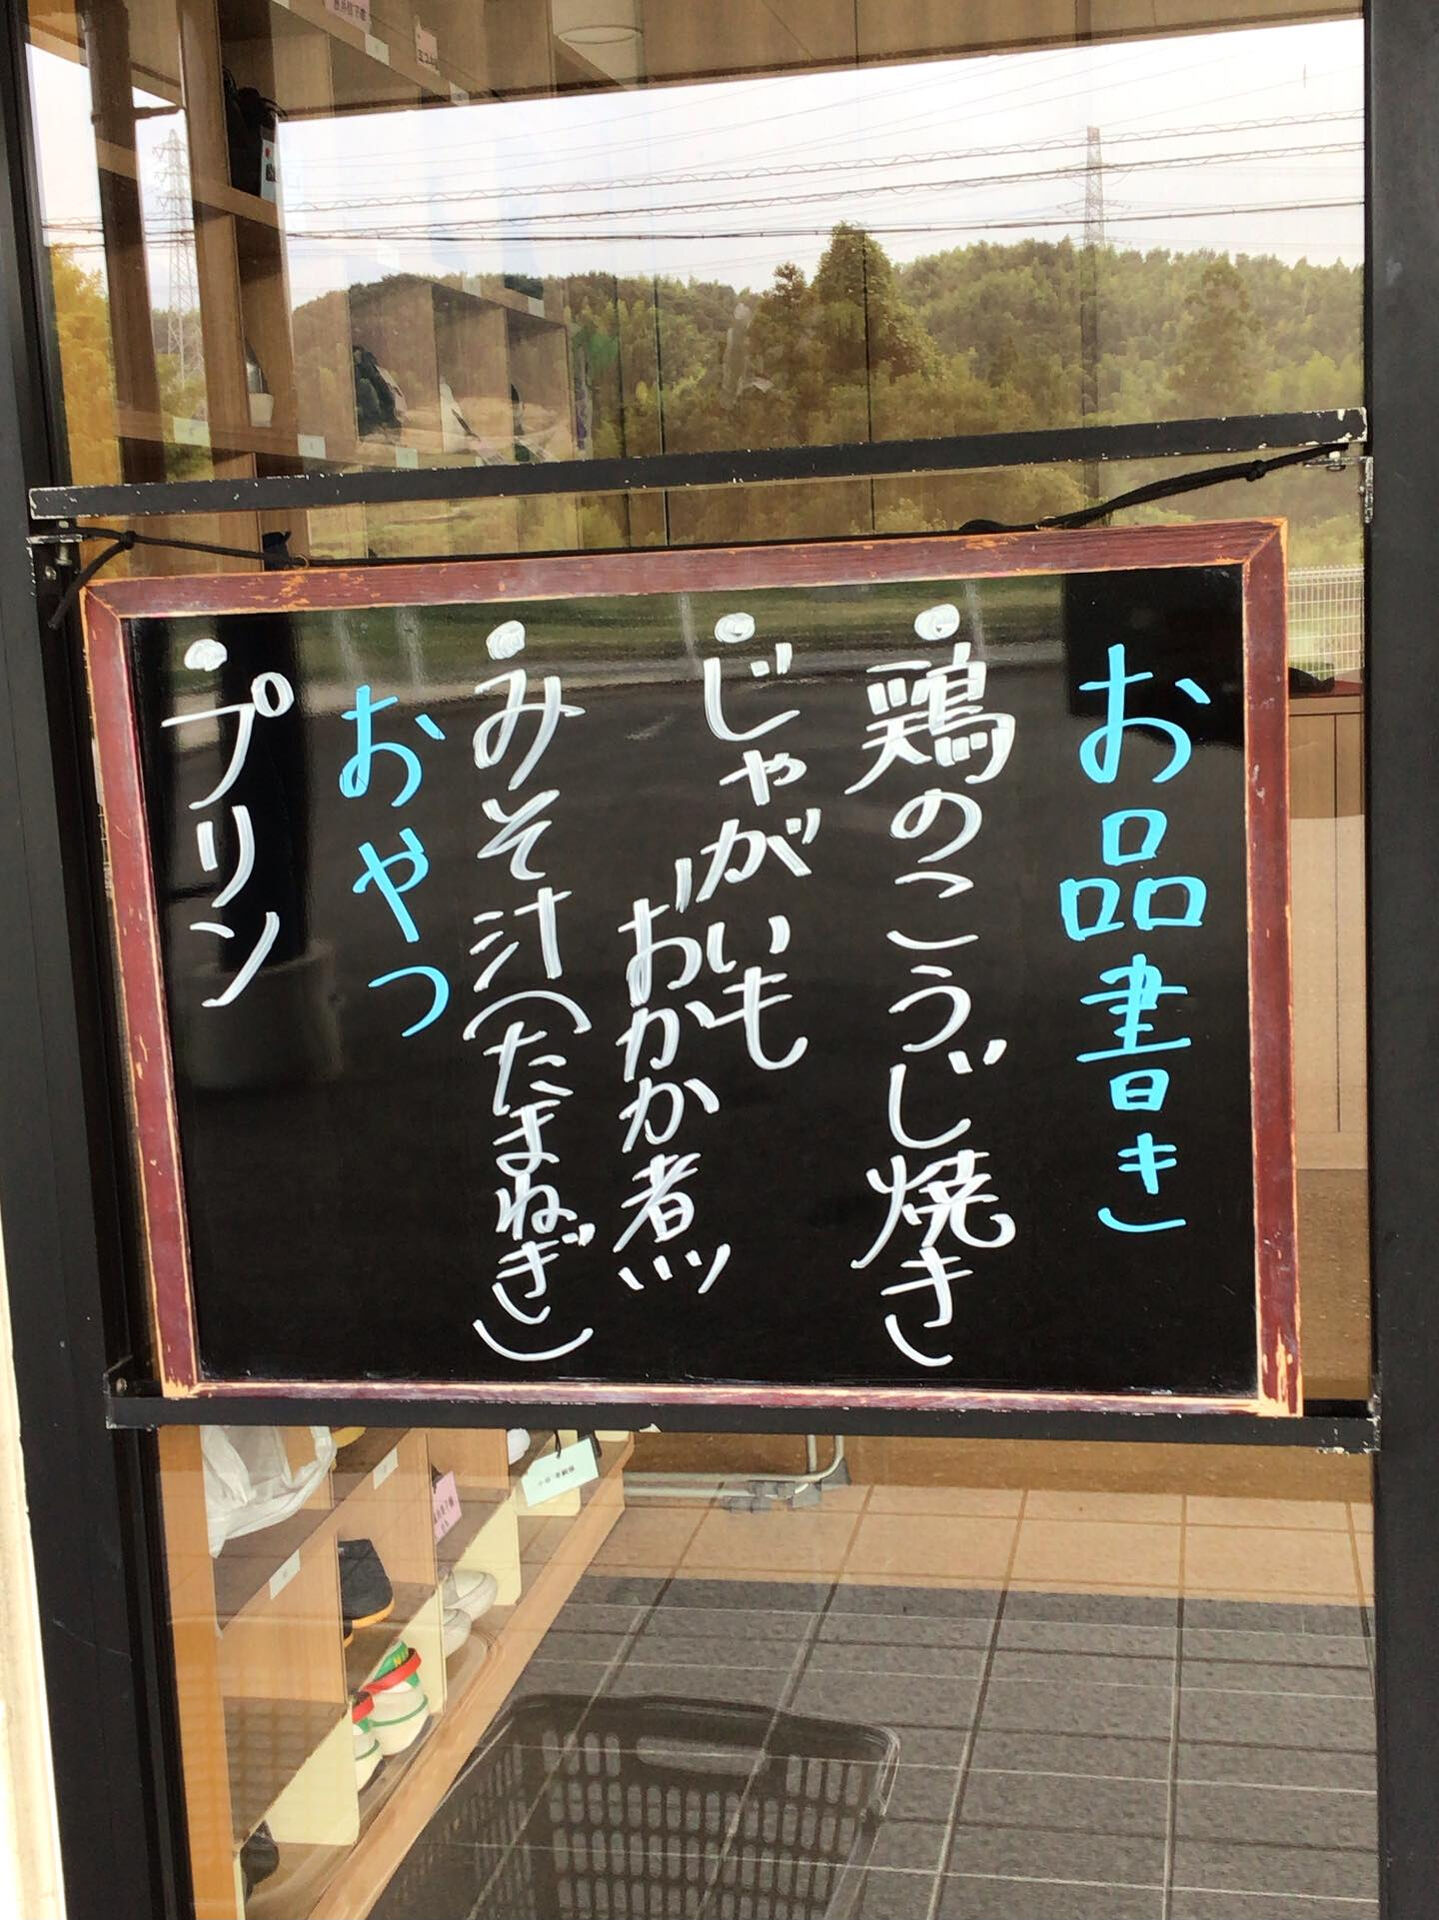 お品書き
・鶏のこうじ焼き
・じゃがいも
おかか煮
・みそ汁(たまねぎ)
おやつ
・プリン